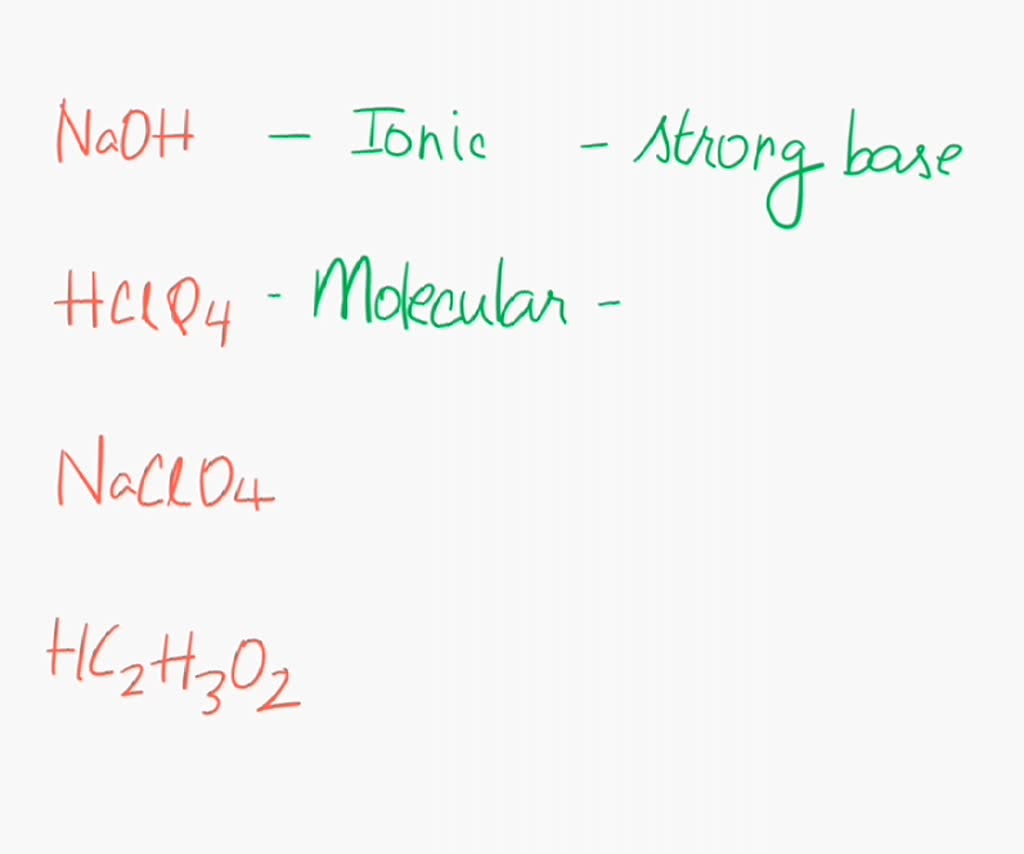 NaOH - Ionic - strong base
HClO4 - Molecular -
NaClO4
HC2H3O2